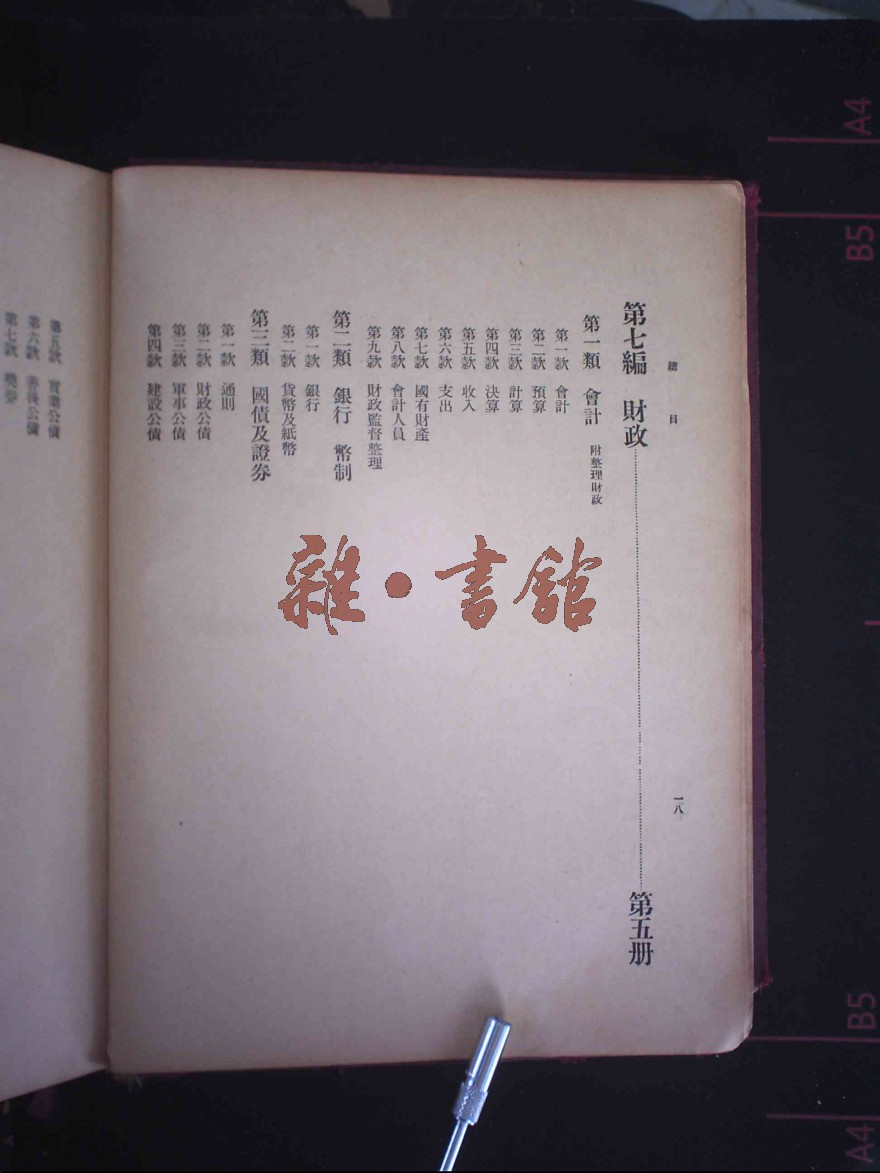 總目
一八
第七編 財政 第五册
第一類 會計 附整理財政
第一款 會計
第二款 預算
第三款 計算
第四款 決算
第五款 收入
第六款 支出
第七款 國有財產
第八款 會計人員
第九款 財政監督整理
第二類 銀行 幣制
第一款 銀行
第二款 貨幣及紙幣
第三類 國債及證券
第一款 通則
第二款 財政公債
第三款 軍事公債
第四款 建設公債
第五款 實業公債
第六款 善後公債
第七款 獎券
雜·書館
A4
B5
B5
A4